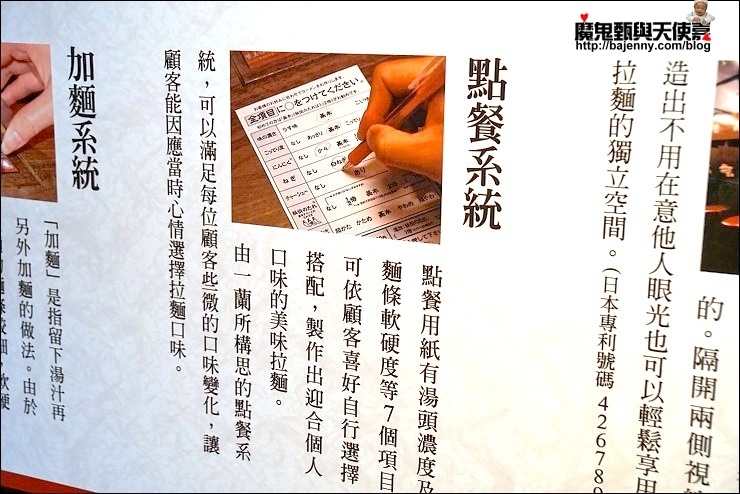 魔鬼甄與天使嘉
http://bajenny.com/blog
的。隔開兩側視
造出不用在意他人眼光也可以輕鬆享用
拉麵的獨立空間。(日本專利號碼 426789
點餐系統
點餐用紙有湯頭濃度及
麵條軟硬度等7個項目
可依顧客喜好自行選擇
搭配，製作出迎合個人
口味的美味拉麵。
由一蘭所構思的點餐系
統，可以滿足每位顧客些微的口味變化，讓
顧客能因應當時心情選擇拉麵口味。
全項目に○をつけてください。
味の濃さ うす味 基本 こい味
こってり度 なし あっさり 基本 こってり
にんにく なし 少々 基本
ねぎ なし 白ねぎ
チャーシュー なし
なし 1/2倍 基本 2倍
超かた かため 基本 やわめ 超やわ
加麵系統
「加麵」是指留下湯汁再
另外加麵的做法。由於